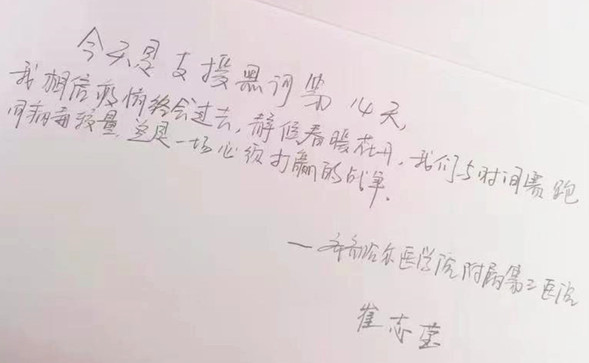 今天是支援黑河第14天,
我相信疫情终会过去,静候春暖花开,我们与时间赛跑
同病毒较量,这是一场必须打赢的战争.
—齐齐哈尔医学院附属第三医院
崔志堂